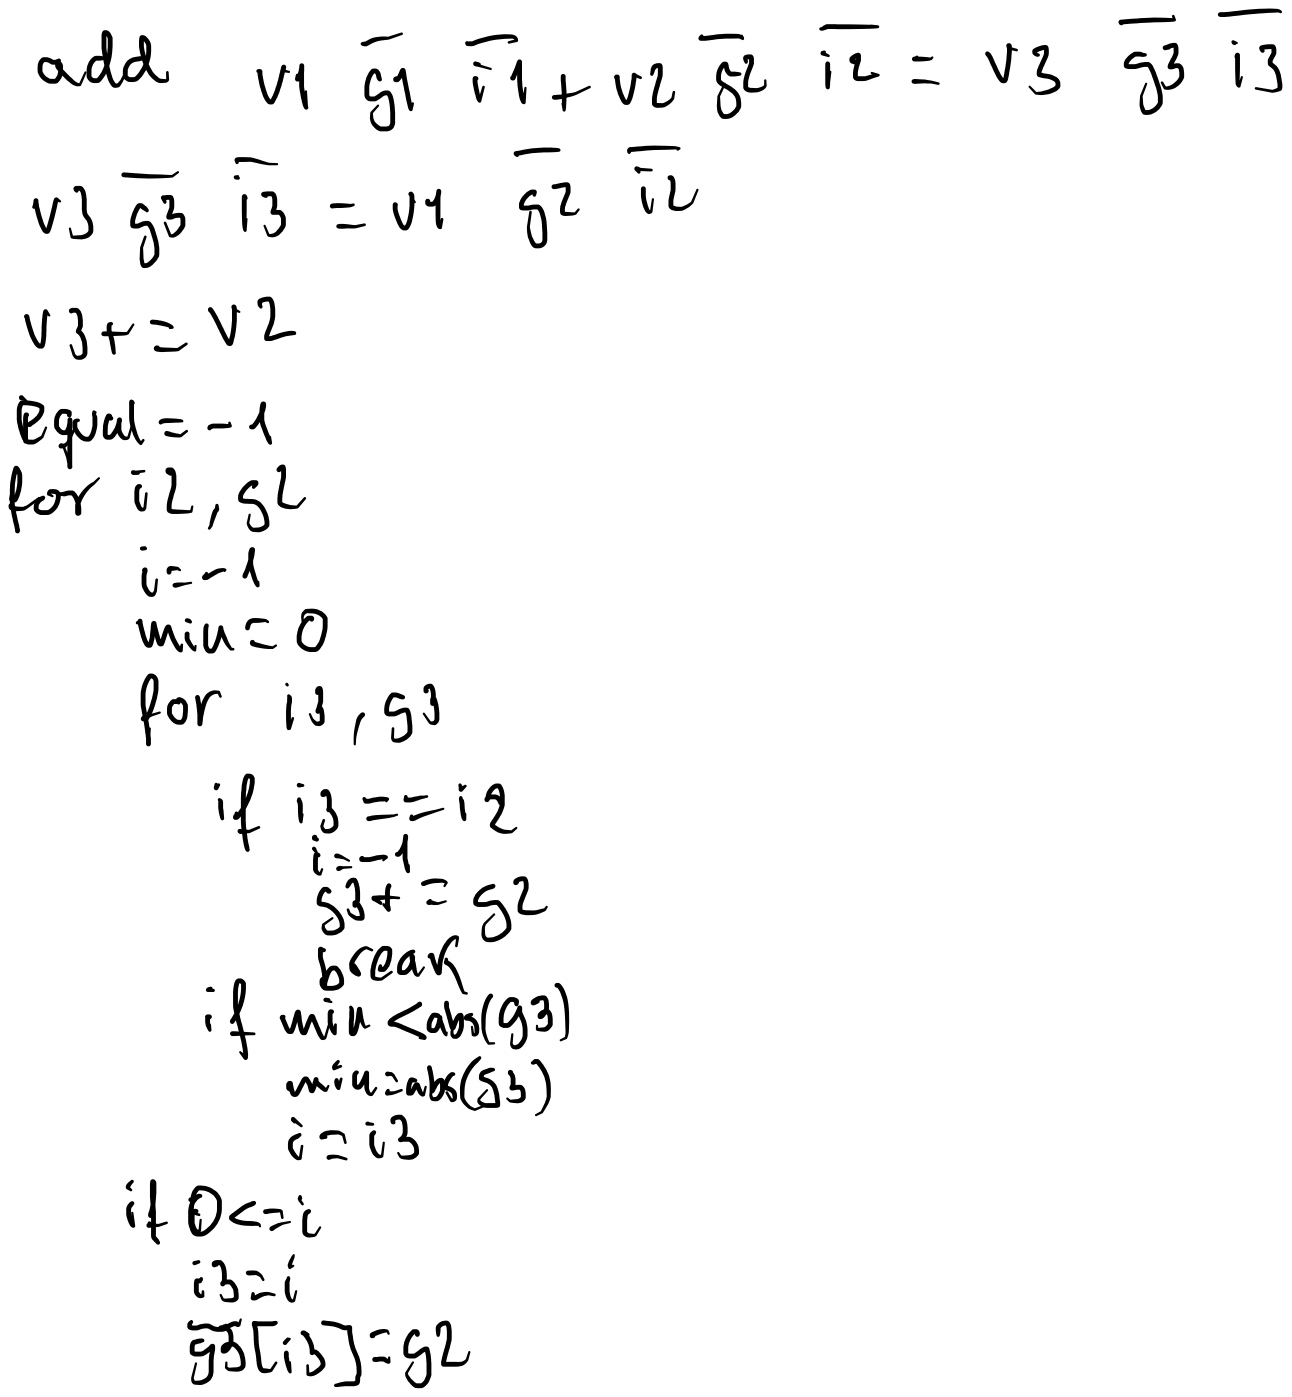 add v1 g1 i1 + v2 g2 i2 = v3 g3 i3
v3 g3 i3 = v1 g2 i2
v3+=v2
equal=-1
for i2, g2
i=-1
min=0
for i3, g3
if i3 == i2
i=-1
g3+=g2
break
if min <abs(g3)
min=abs(g3)
i=i3
if 0<=i
i3=i
g3[i3]=g2